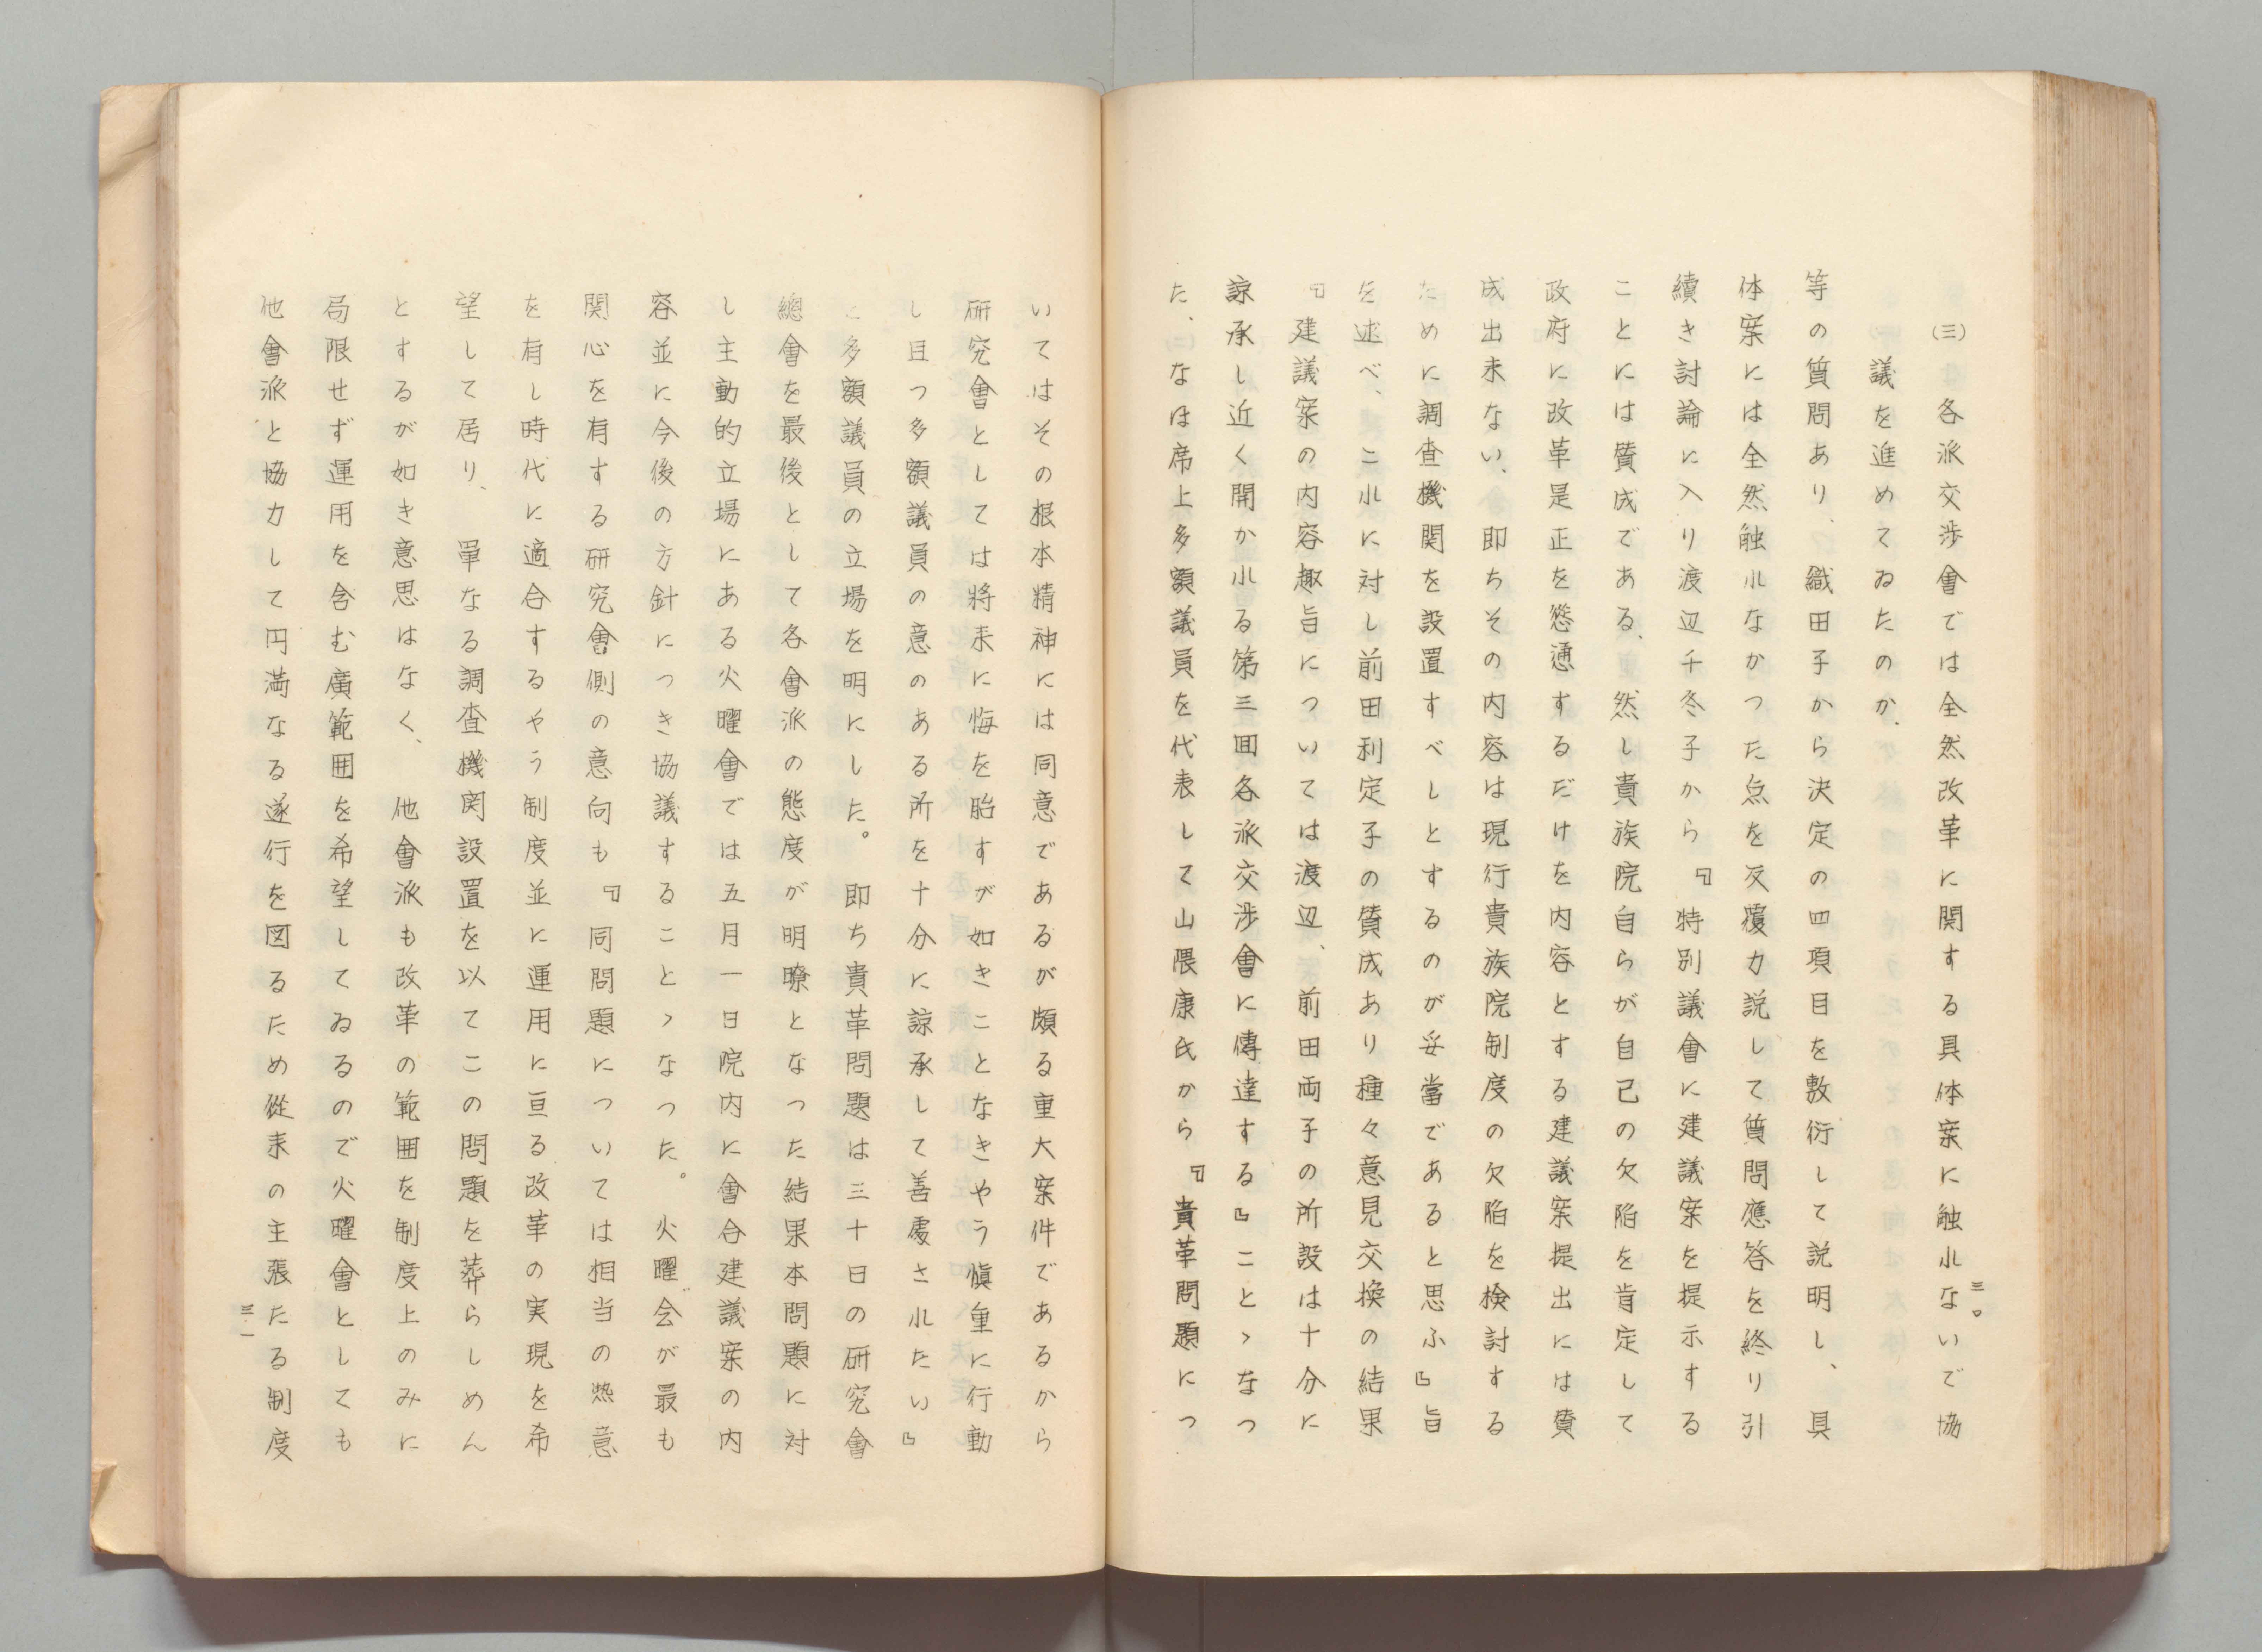 (三) 各派交渉會では全然改革に関する具体案に触れないで協
議を進めてゐたのか、
等の質問あり、織田子から決定の四項目を敷衍して説明し、具
体案には全然触れなかつた点を反覆力説して質問應答を終り引
續き討論に入り渡辺千冬子から『特別議會に建議案を提示する
ことには賛成である、然し貴族院自らが自己の欠陥を肯定して
政府に改革是正を慫慂するだけを内容とする建議案提出には賛
成出来ない、即ちその内容は現行貴族院制度の欠陥を検討する
ために調査機関を設置すべしとするのが妥當であると思ふ』旨
を述べ、これに対し前田利定子の賛成あり種々意見交換の結果
『建議案の内容趣旨については渡辺、前田両子の所説は十分に
諒承し近く開かれる第三回各派交渉會に傳達する』ことゝなつ
た、なほ席上多額議員を代表して山隈康氏から『貴革問題につ
三〇
いてはその根本精神には同意であるが頗る重大案件であるから
研究會としては将来に悔を胎すが如きことなきやう愼重に行動
し且つ多額議員の意のある所を十分に諒承して善處されたい』
と多額議員の立場を明にした。即ち貴革問題は三十日の研究會
總會を最後として各會派の態度が明瞭となつた結果本問題に対
し主動的立場にある火曜會では五月一日院内に會合建議案の内
容並に今後の方針につき協議することゝなつた。火曜会が最も
関心を有する研究會側の意向も『同問題については相当の熱意
を有し時代に適合するやう制度並に運用に亘る改革の実現を希
望して居り、單なる調査機関設置を以てこの問題を葬らしめん
とするが如き意思はなく、他會派も改革の範囲を制度上のみに
局限せず運用を含む廣範囲を希望してゐるので火曜會としても
他會派と協力して円満なる遂行を図るため從来の主張たる制度
三一